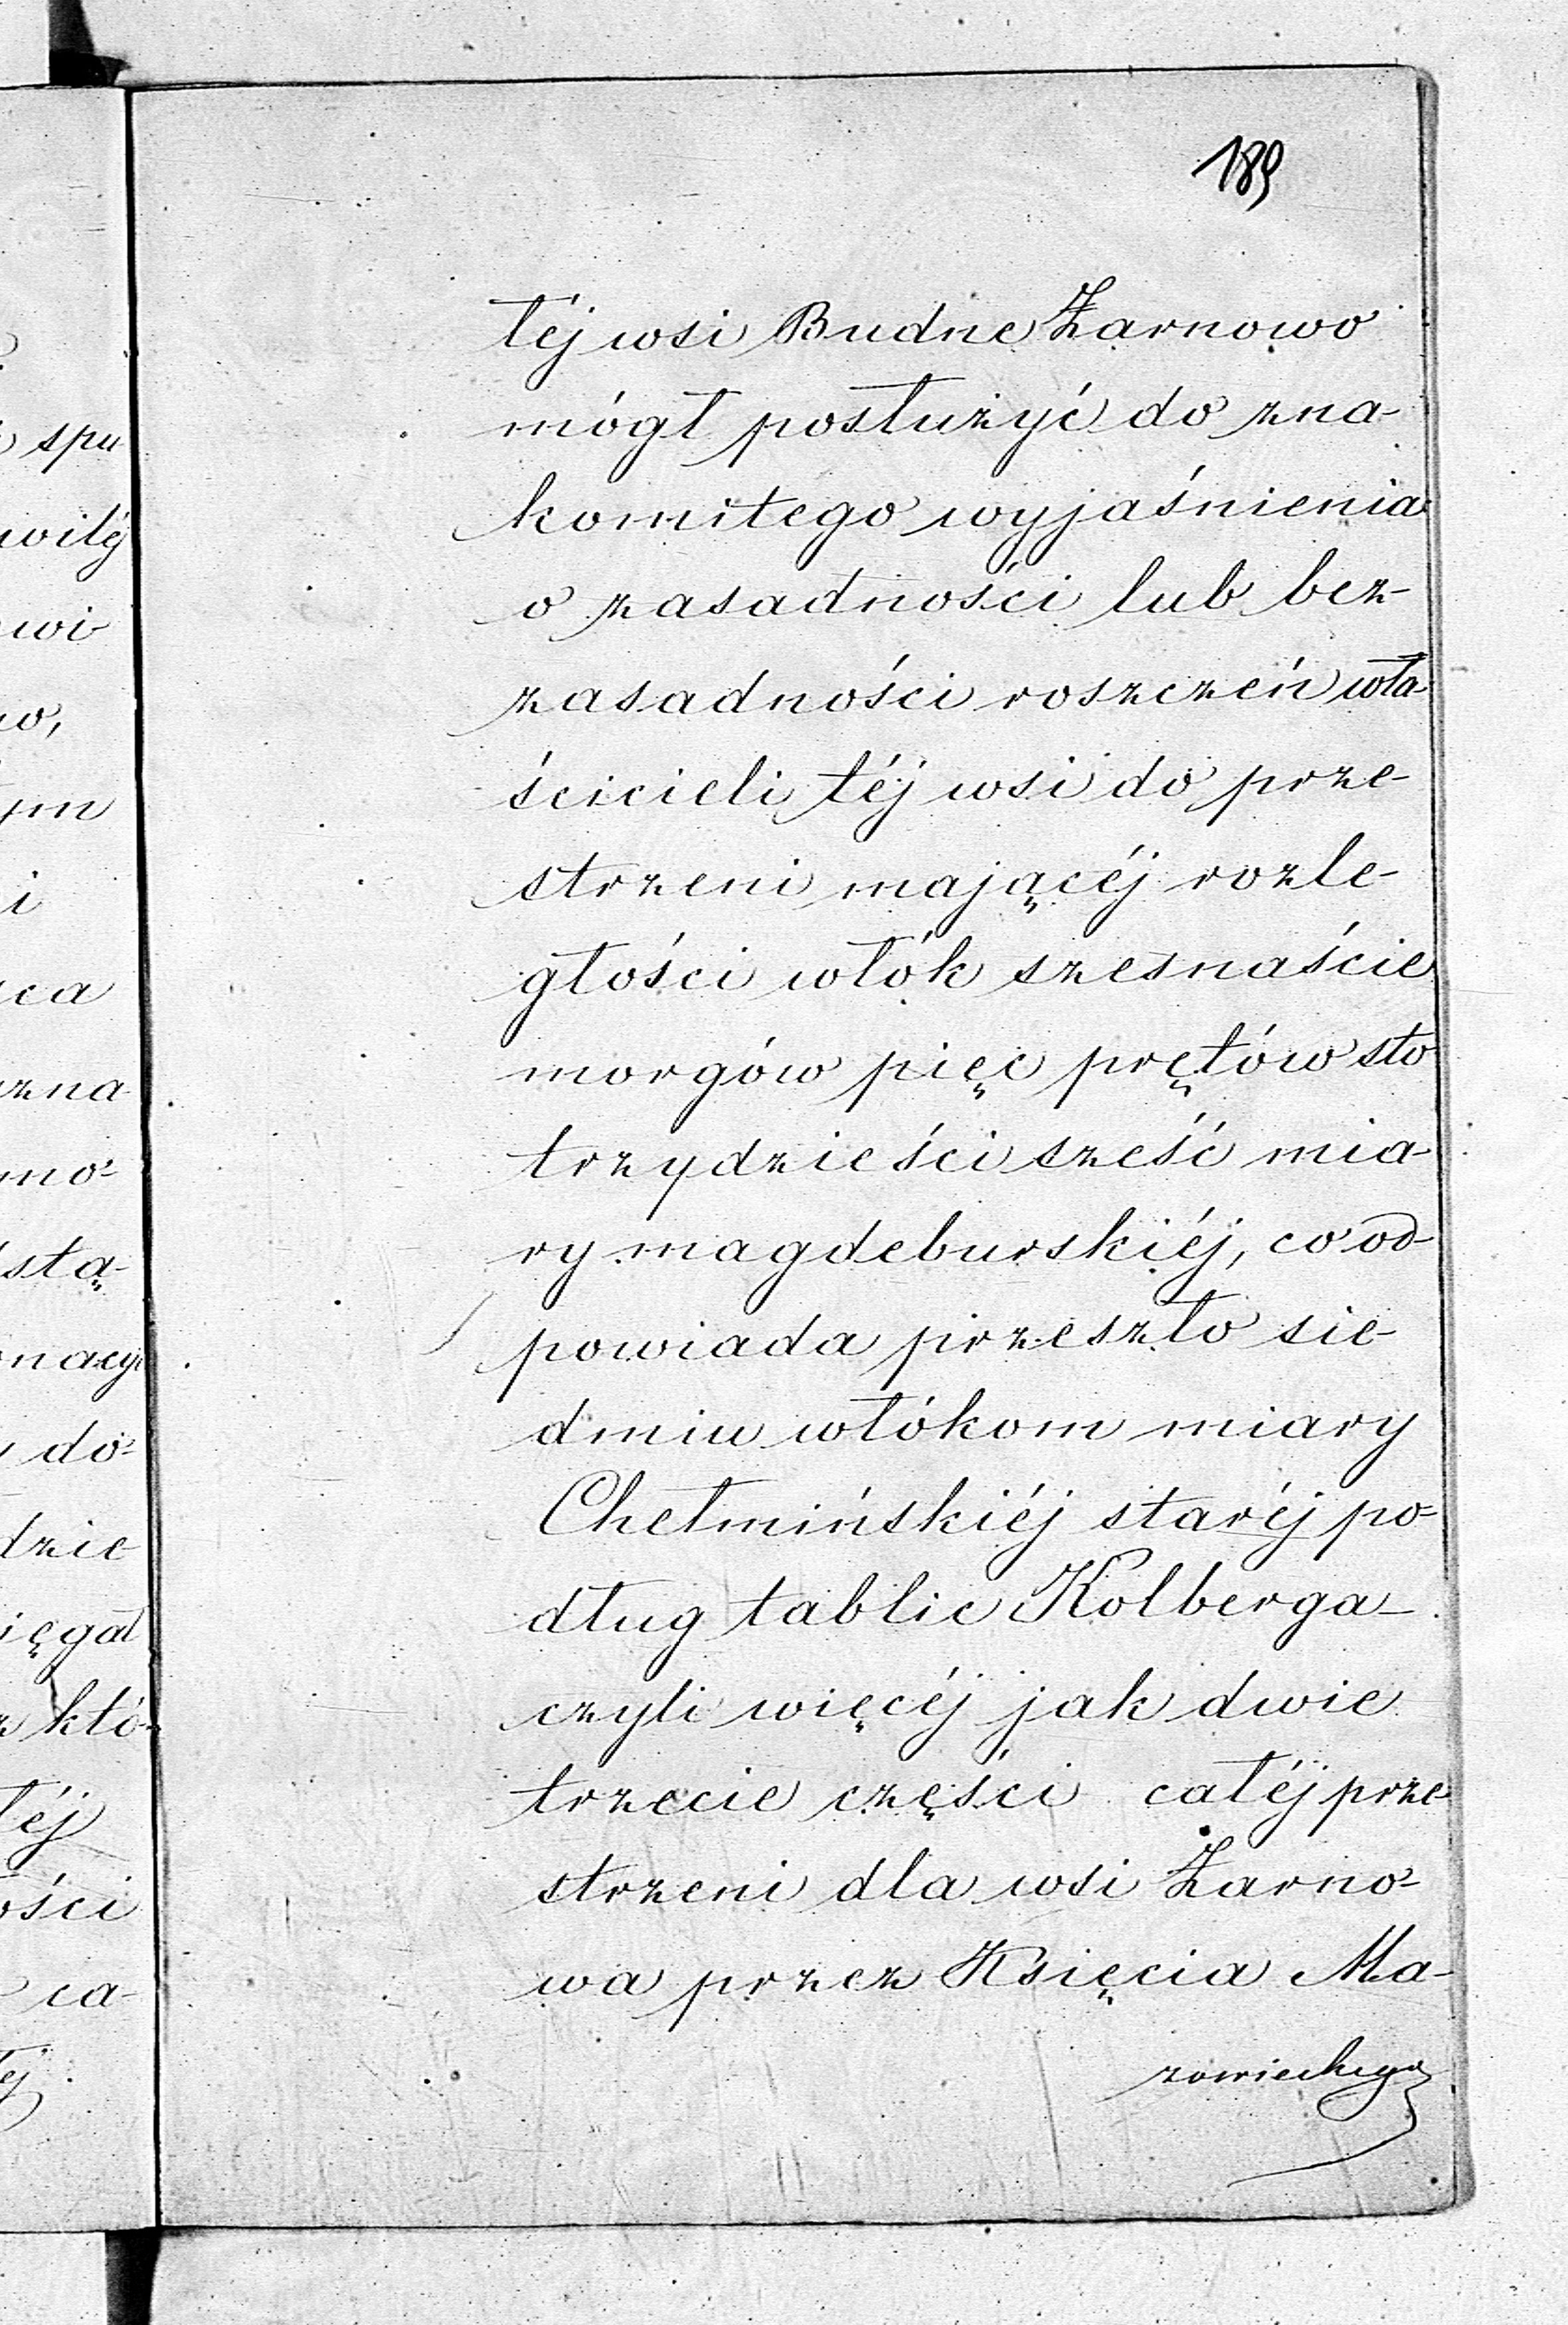 189
téj wsi Budne Żarnowo
mógł posłużyć do zna-
komitego wyjaśnienia
o zasadności lub bez-
zasadności roszczeń wła-
ścicieli téj wsi do prze-
strzeni mającéj rozle-
głości włók szesnaście
morgów pięc prętów sto
trzydzieści sześć mia-
ry magdeburskiéj, co od-
powiada przeszło sie-
dmiu włókom miary
Chełmińskiéj staréj po-
dług tablic Kolberga –
czyli więcéj jak dwie
trzecie części całéj prze
strzeni dla wsi Żarno-
wa przez Księcia Ma-
zowieckiego
spu
wi
wo,
i
zna
mo-
stą-
do-
dzie
któ-
téj
ości
ca-